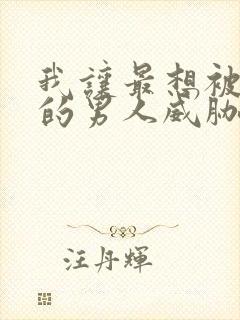 我讓最想被
的男人威脅
汪丹輝